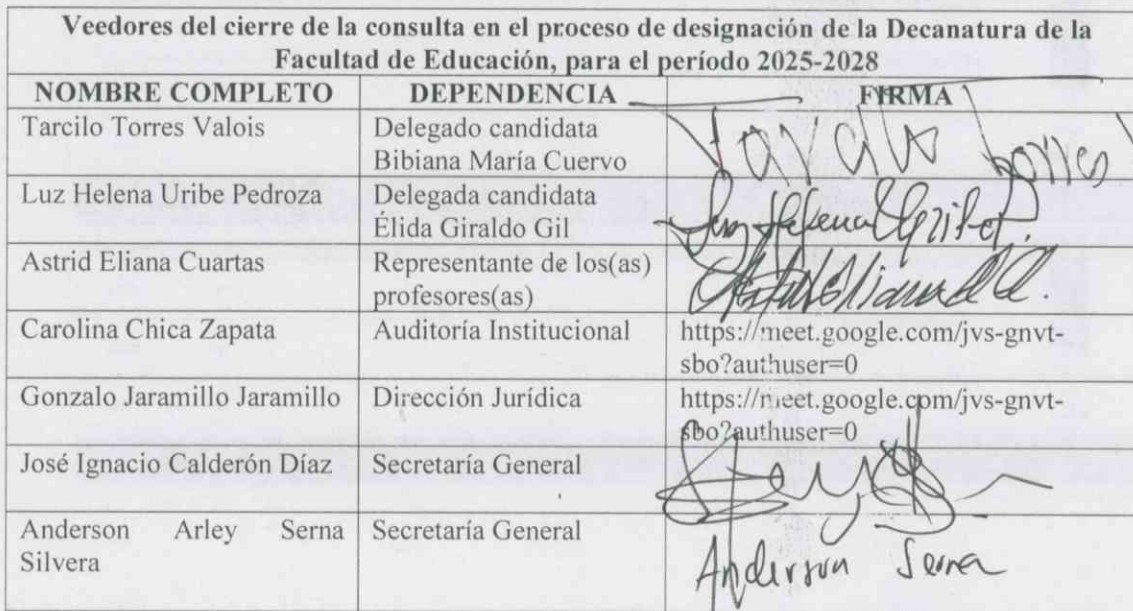 Veedores del cierre de la consulta en el proceso de designación de la Decanatura de la
Facultad de Educación, para el período 2025-2028
NOMBRE COMPLETO DEPENDENCIA FIRMA
Tarcilo Torres Valois Delegado candidata
Bibiana María Cuervo Tarcilo Torres
Luz Helena Uribe Pedroza Delegada candidata
Élida Giraldo Gil Luz Helena Uribe P.
Astrid Eliana Cuartas Representante de los(as)
profesores(as)
Carolina Chica Zapata Auditoría Institucional https://meet.google.com/jvs-gnvt-
sbo?authuser=0
Gonzalo Jaramillo Jaramillo Dirección Jurídica https://meet.google.com/jvs-gnvt-
sbo?authuser=0
José Ignacio Calderón Díaz Secretaría General
Anderson Arley Serna Secretaría General
Silvera Anderson Serna